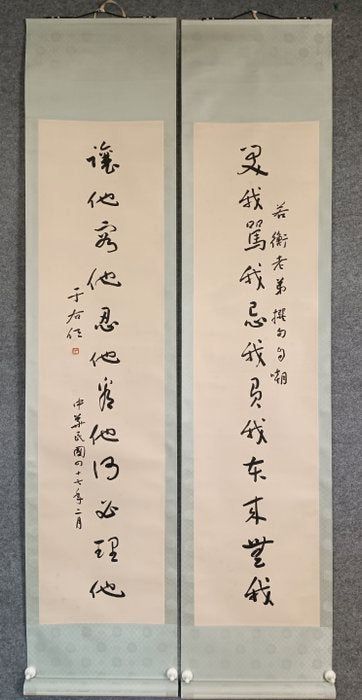 笑我罵我忌我負我本來無我
若衡老弟撰句自嘲
讓他容他忍他 他何必理他
于右任
中華民國四十七年二月